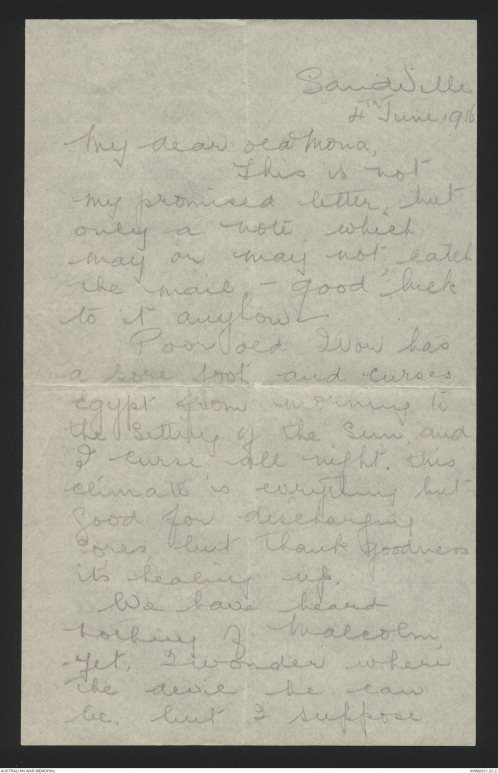 SandVille
4th June 1916
My dear old Mona,
This is not
my promised letter, but
only a note, which
may or may not, catch
the mail, - good luck
to it anyhow -
Poor old Ivor has
a sore foot and curses
egypt from morning to
the Setting of the Sun and
I curse all night. this
climate is everything but
good for discharging
Sores, but thank goodness
its healing up.
We have heard
nothing of Malcolm,
yet. I wonder where
the devil he can
be. but I suppose
AUSTRALIAN WAR MEMORIAL